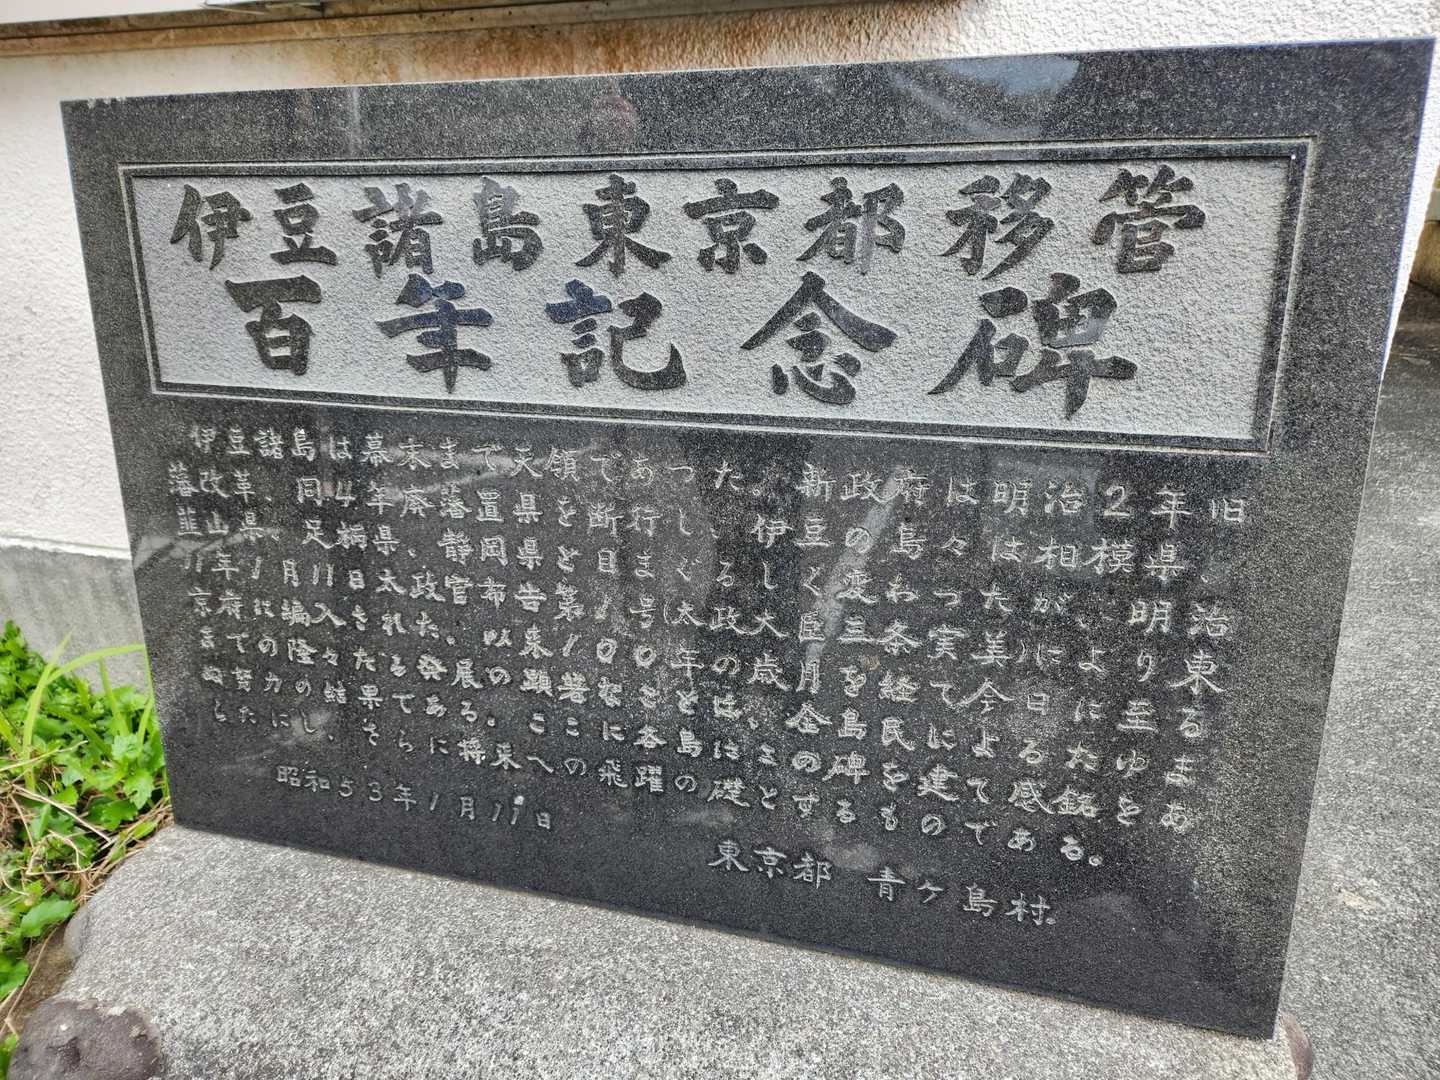 伊豆諸島東京都移管
百年記念碑
伊豆諸島は幕末まで天領であつた。新政府は明治2年、旧
藩改革、同4年廃藩置県を断行し、伊豆島々は相模県、
韮山県、足柄県、静岡県と目まぐるしく変わつたが、明治
11年1月11日太政官布告第1号(太政大臣三条実美)により東
京府に編入された。以来100年の歳月を経て今日に至るま
での隆々たる発展の顕著は、全島民によるたゆ
まぬ努力の結果である。ここに各島に碑を建て感銘をあ
らたにし、さらに将来への飛躍の礎とするものである。
昭和53年1月11日
東京都 青ヶ島村